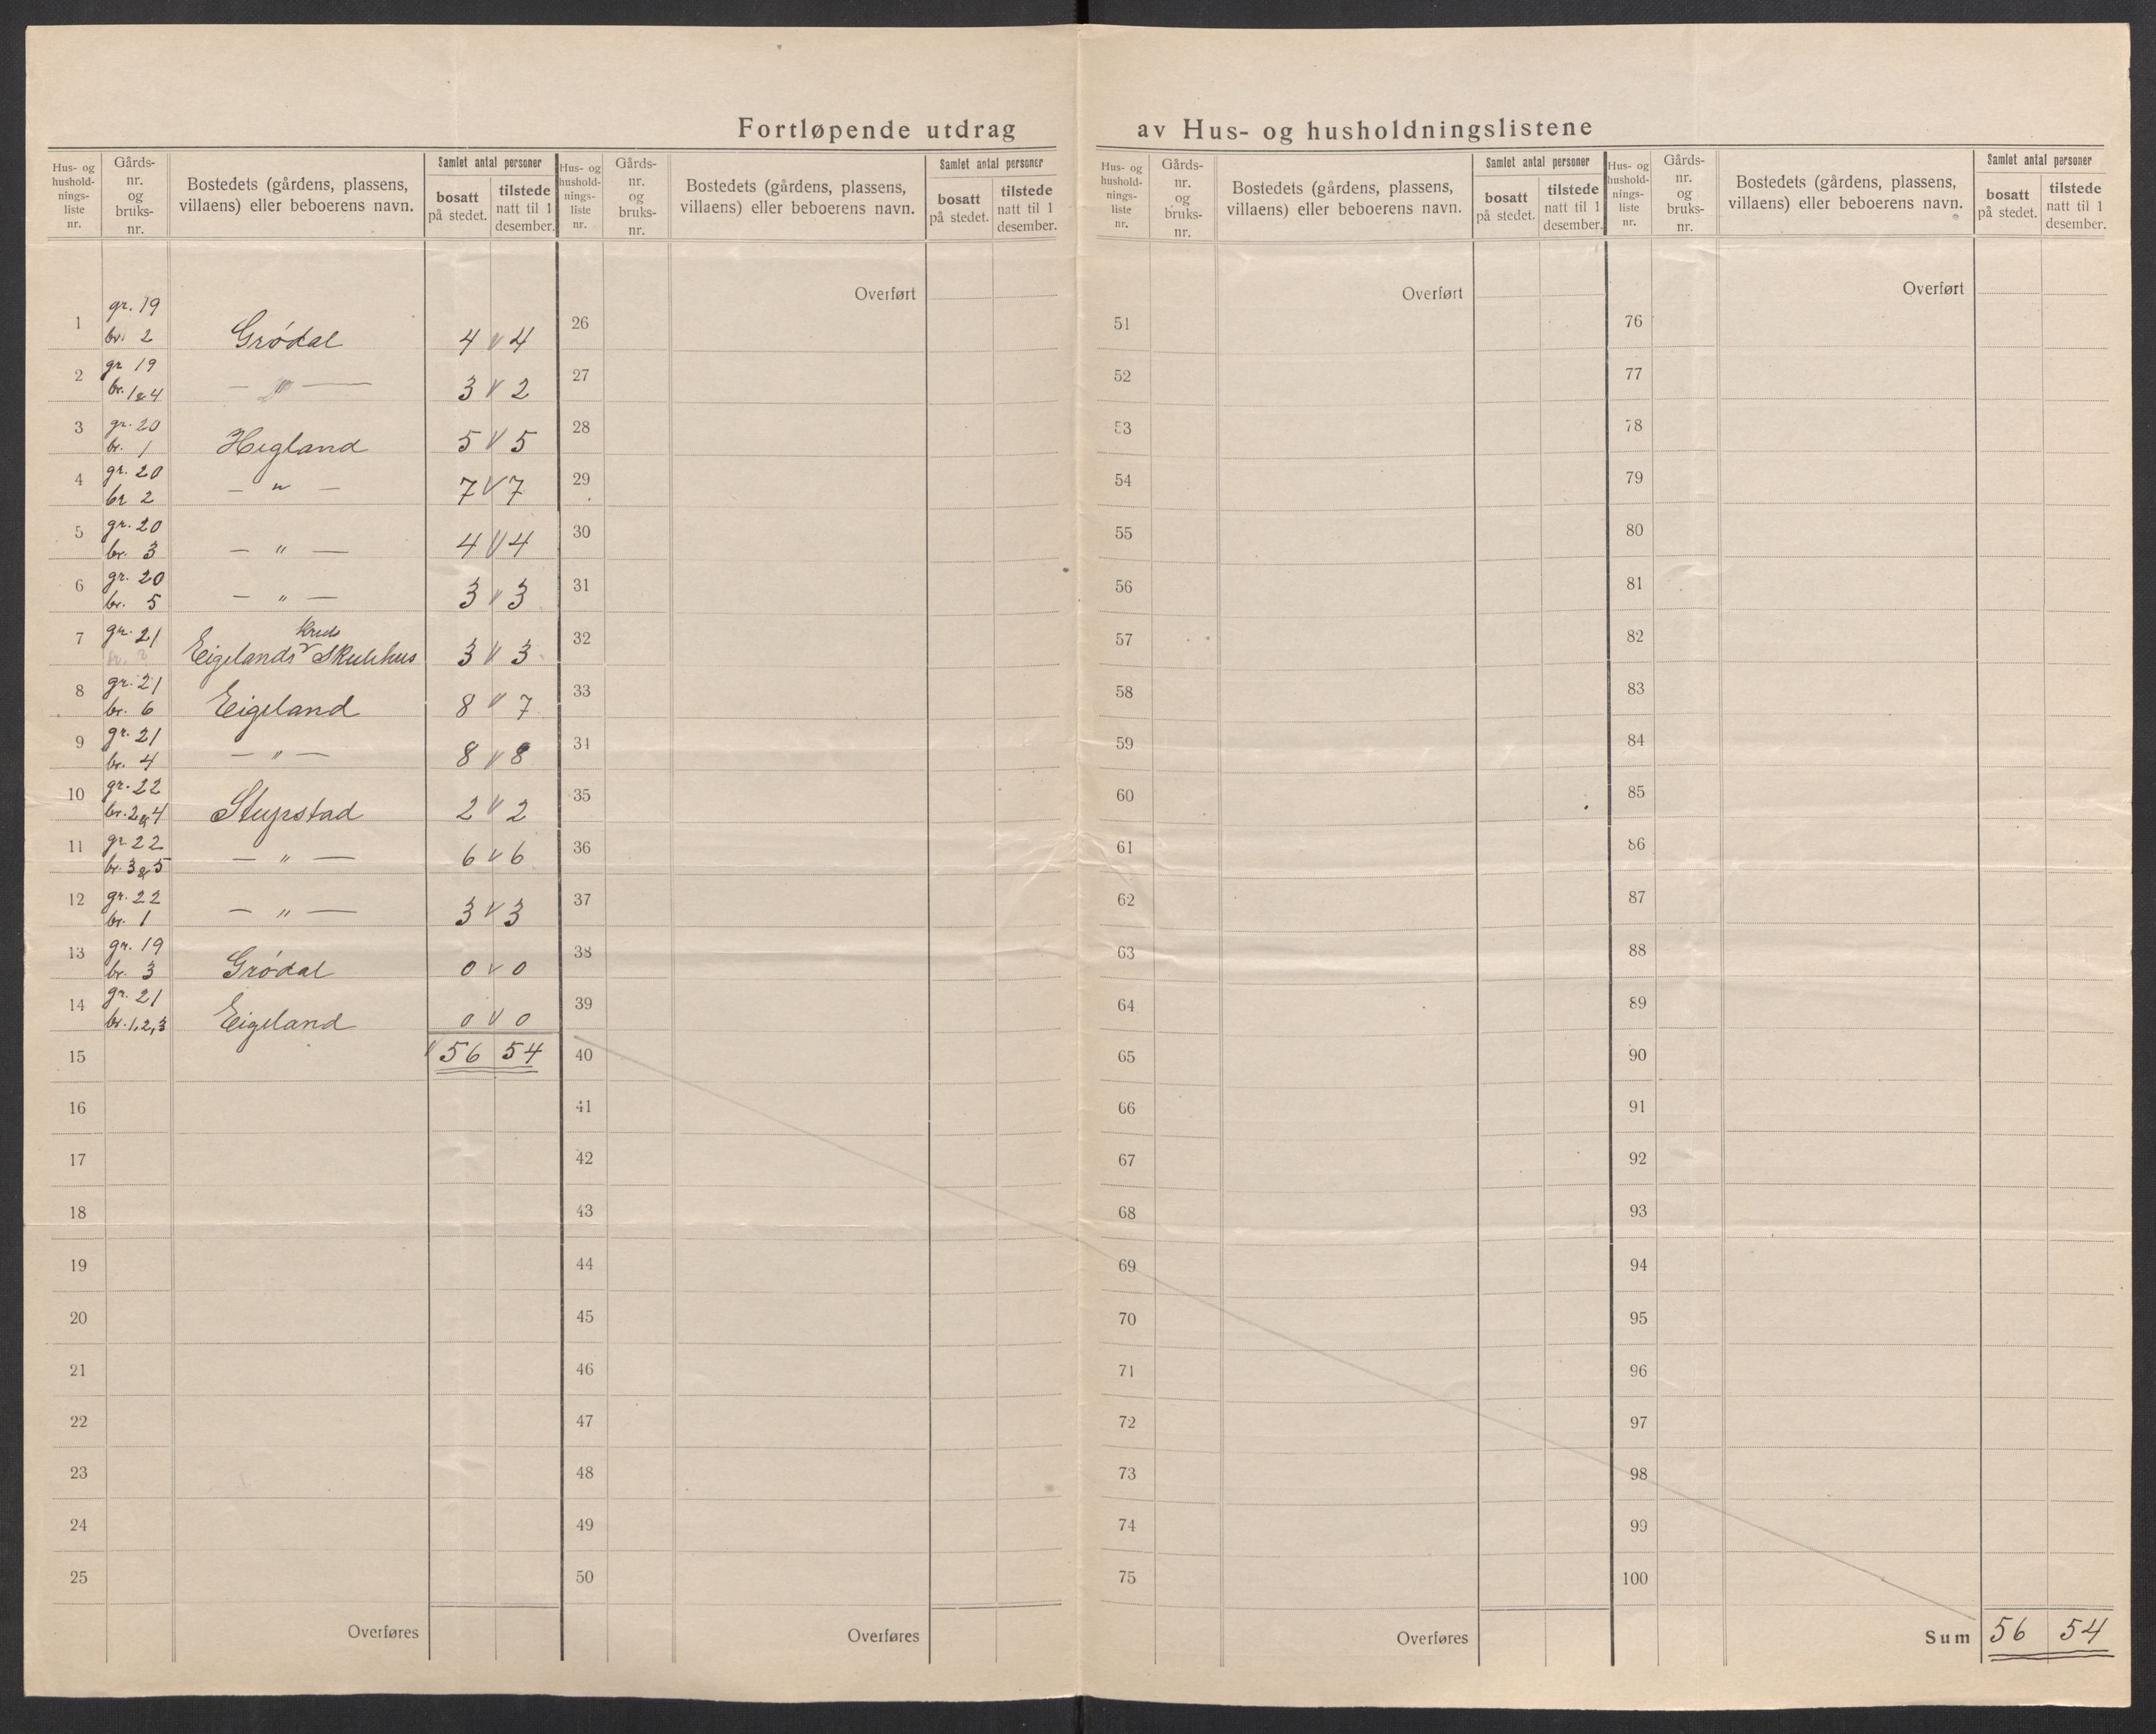 Fortløpende utdrag av Hus- og husholdningslistene
Hus- og hushold- nings- liste nr. | Gårds- nr. og bruks- nr. | Bostedets (gårdens, plassens, villaens) eller beboerens navn. | Samlet antal personer | bosatt på stedet. | tilstede natt til 1 desember.
1 gr. 19 br. 2 Grødal 4 v 4
2 gr 19 br. 1 & 4 — " — 3 v 2
3 gr. 20 br. 1 Hegland 5 v 5
4 gr. 20 br 2 — " — 7 v 7
5 gr. 20 br. 3 — " — 4 v 4
6 gr. 20 br. 5 — " — 3 v 3
7 gr. 21 Eigelands krets Skulehus 3 v 3
8 gr. 21 br. 6 Eigeland 8 v 7
9 gr. 21 br. 4 — " — 8 v 8
10 gr. 22 br. 2 & 4 2 v 2
11 gr 22 br. 3 & 5 — " — 6 v 6
12 gr. 22 br. 1 — " — 3 v 3
13 gr. 19 br. 3 Grødal 0 v 0
14 gr. 21 br. 1, 2, 3 Eigeland 0 v 0
15 v 56 54
16
17
18
19
20
21
22
23
24
25
Overføres
Hus- og hushold- nings- liste nr. | Gårds- nr. og bruks- nr. | Bostedets (gårdens, plassens, villaens) eller beboerens navn. | Samlet antal personer | bosatt på stedet. | tilstede natt til 1 desember.
Overført
26
27
28
29
30
31
32
33
34
35
36
37
38
39
40
41
42
43
44
45
46
47
48
49
50
Overføres
Hus- og hushold- nings- liste nr. | Gårds- nr. og bruks- nr. | Bostedets (gårdens, plassens, villaens) eller beboerens navn. | Samlet antal personer | bosatt på stedet. | tilstede natt til 1 desember.
Overført
51
52
53
54
55
56
57
58
59
60
61
62
63
64
65
66
67
68
69
70
71
72
73
74
75
Overføres
Hus- og hushold- nings- liste nr. | Gårds- nr. og bruks- nr. | Bostedets (gårdens, plassens, villaens) eller beboerens navn. | Samlet antal personer | bosatt på stedet. | tilstede natt til 1 desember.
Overført
76
77
78
79
80
81
82
83
84
85
86
87
88
89
90
91
92
93
94
95
96
97
98
99
100
Sum 56 54